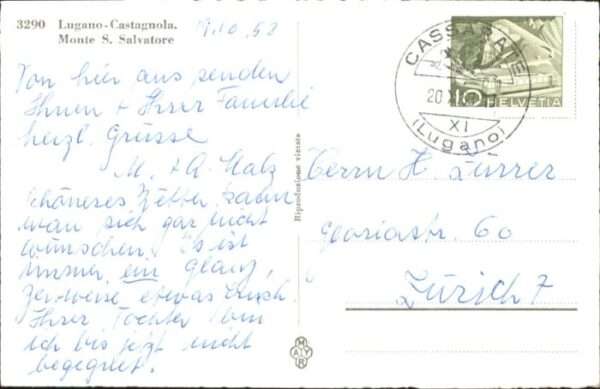 3290 Lugano-Castagnola.
Monte S. Salvatore
Von hier aus senden
Ihnen + Ihrer Familie
herzl. Grüsse
M. + A.
Schöneres Wetter kann
man sich gar nicht
wünschen. Es ist
immer ein Glanz,
zeitweise etwas
Ihrer Tochter bin
ich bis jetzt nicht
begegnet.
Riproduzione vietata
MAYR
CASSARATE
20.XI
XI
(Lugano)
10
HELVETIA
Herrn H. Zürrer
Gloriastr. 60
Zürich 7